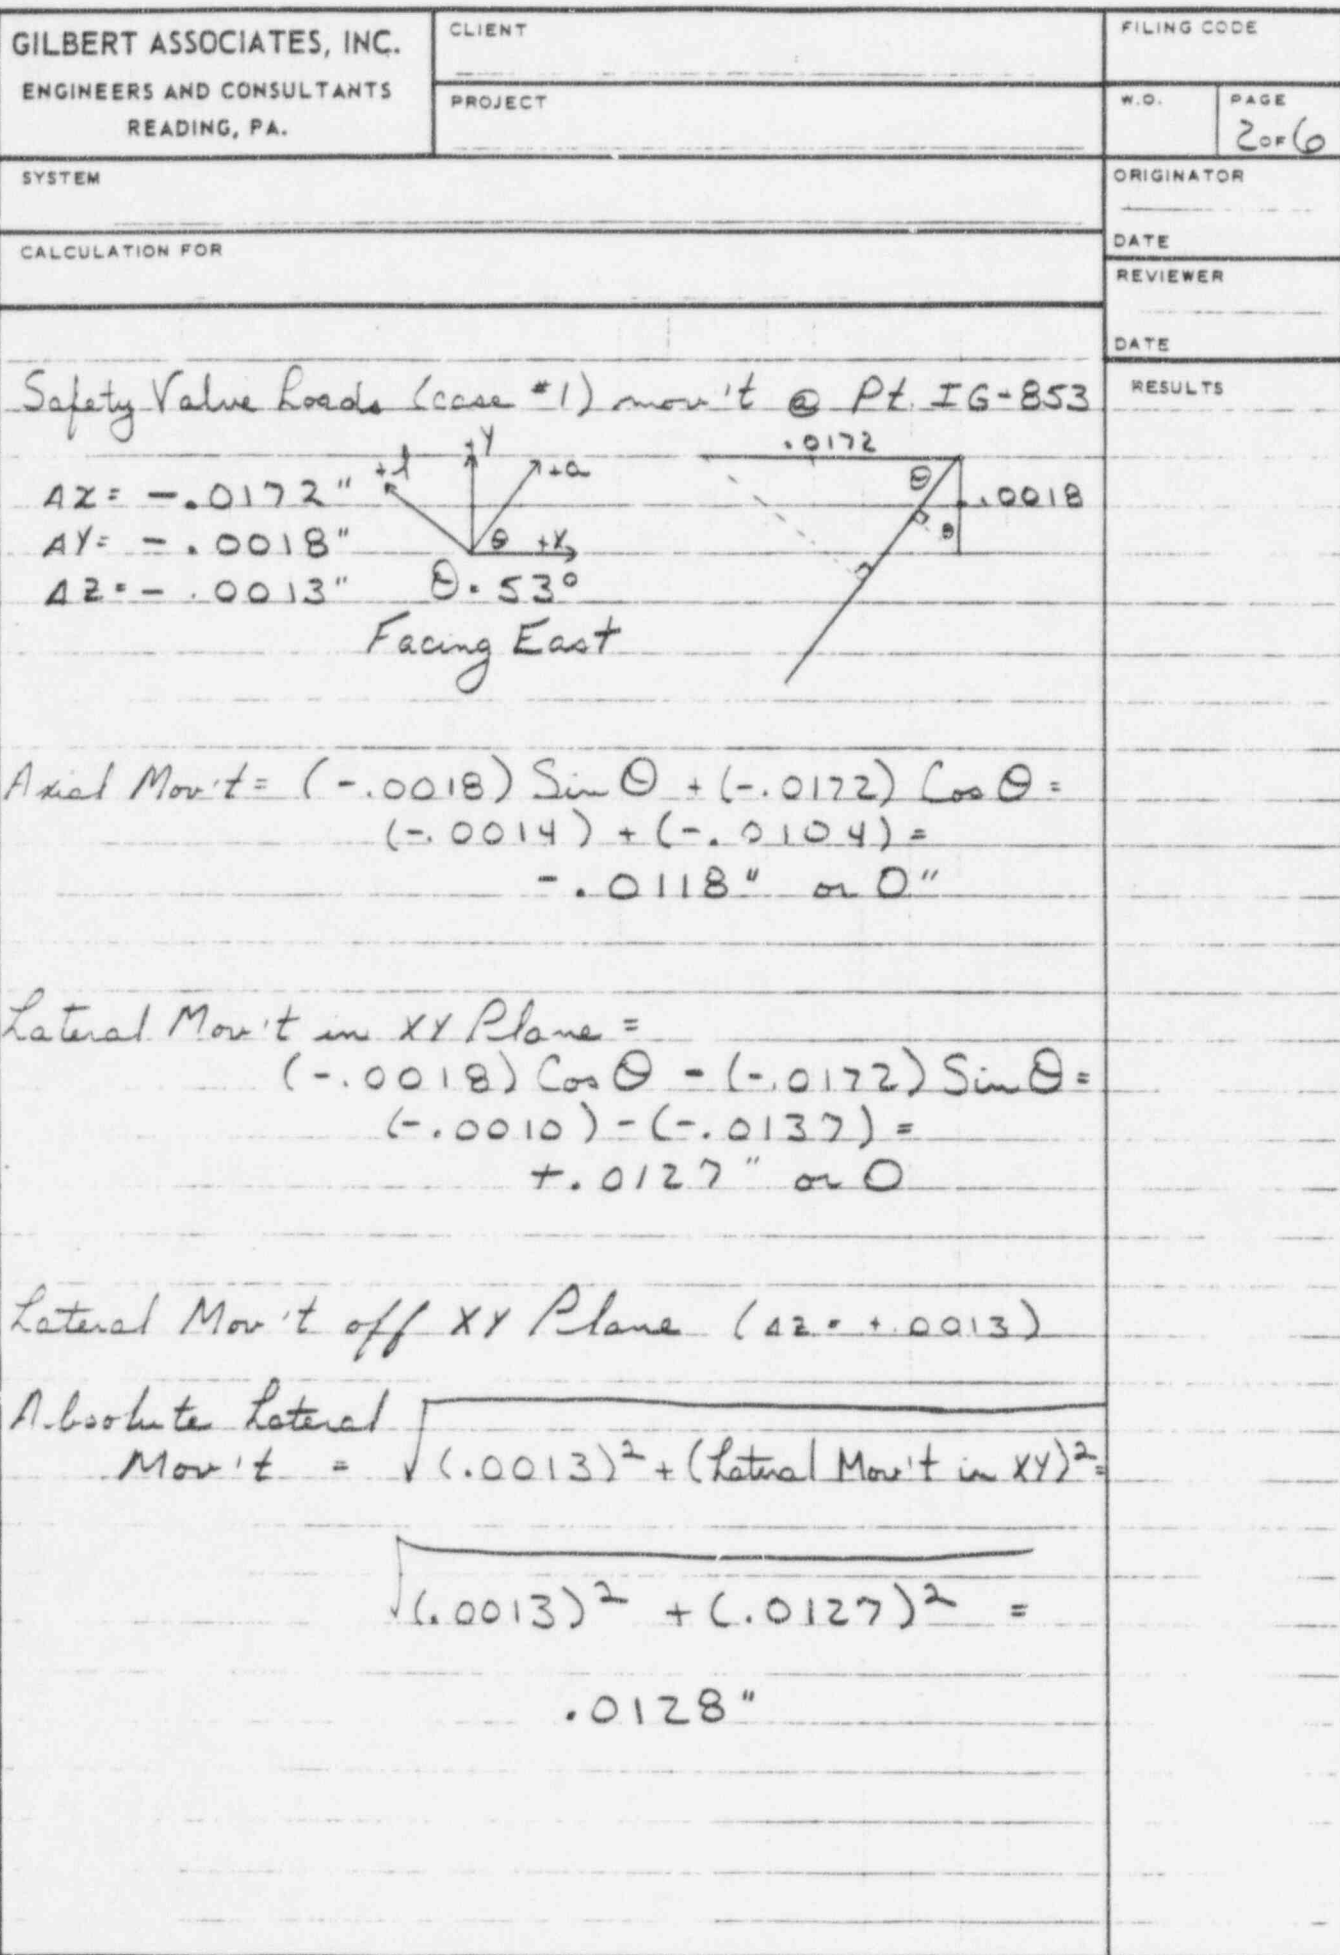 GILBERT ASSOCIATES, INC.
ENGINEERS AND CONSULTANTS
READING, PA.
CLIENT
PROJECT
FILING CODE
W.O.
PAGE
2 OF 6
SYSTEM
ORIGINATOR
DATE
CALCULATION FOR
REVIEWER
DATE
RESULTS
Safety Valve Loads (case #1) mov't @ Pt. IG-853
ΔX= -.0172"
ΔY= -.0018"
ΔZ= -.0013"
+l
+Y
+a
θ +X
θ = 53°
Facing East
.0172
θ
.0018
θ
Axial Mov't = (-.0018) Sin θ + (-.0172) Cos θ =
(-.0014) + (-.0104) =
-.0118" or 0"
Lateral Mov't in XY Plane =
(-.0018) Cos θ - (-.0172) Sin θ =
(-.0010) - (-.0137) =
+.0127" or 0
Lateral Mov't off XY Plane (ΔZ = +.0013)
Absolute Lateral
Mov't = √(.0013)² + (Lateral Mov't in XY)² =
√(.0013)² + (.0127)² =
.0128"